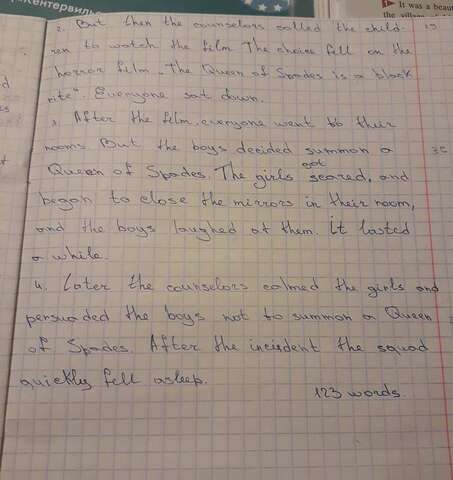 кентервильс
It was a beau
the village of
2. But then the counselors called the child-
ren to watch the film. The choice fell on the
horror film „The Queen of Spades is a black
rite". Everyone sat down.
3. After the film, everyone went to their
rooms. But the boys decided summon a
Queen of Spades. The girls got scared, and
began to close the mirrors in their room,
and the boys laughed at them. It lasted
a while.
4. Later the counselors calmed the girls and
persuaded the boys not to summon a Queen
of Spades. After the incident the squad
quickly fell asleep.
123 words.